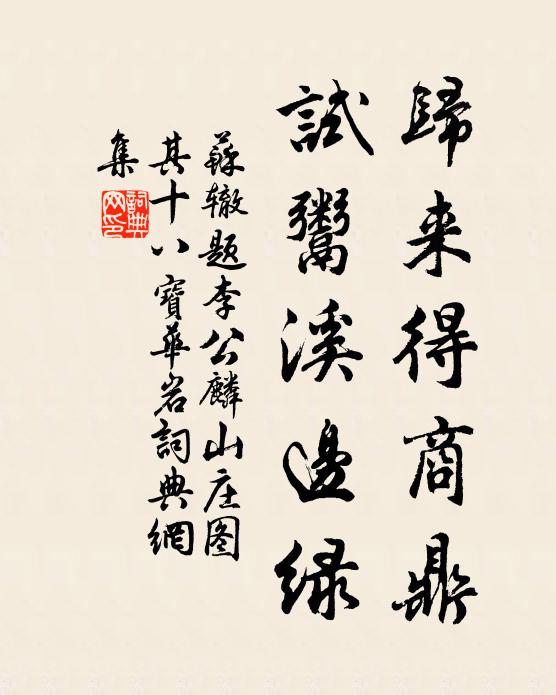 歸来得商鼎
試鬻溪邊緑
蘇辙題李公麟山庄图
其十八寶華岩詞典網
集
詞典
网印